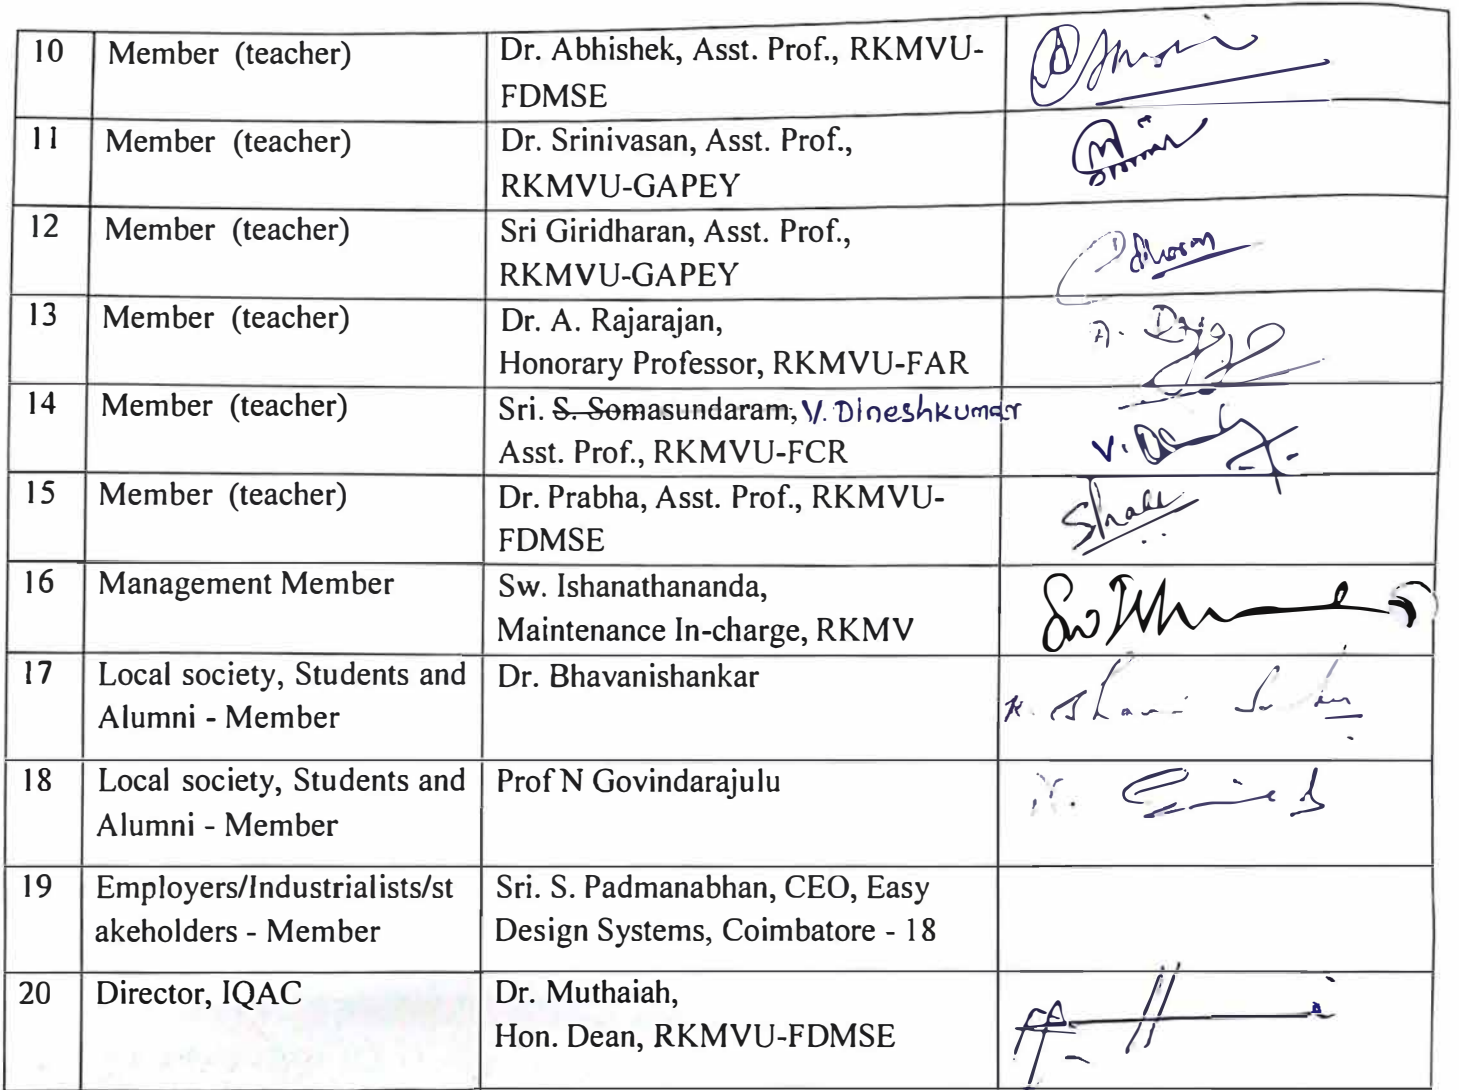 10 Member (teacher) Dr. Abhishek, Asst. Prof., RKMVU-
FDMSE
11 Member (teacher) Dr. Srinivasan, Asst. Prof.,
RKMVU-GAPEY
12 Member (teacher) Sri Giridharan, Asst. Prof.,
RKMVU-GAPEY
13 Member (teacher) Dr. A. Rajarajan,
Honorary Professor, RKMVU-FAR
14 Member (teacher) Sri. S. Somasundaram, V. Dineshkumar
Asst. Prof., RKMVU-FCR
15 Member (teacher) Dr. Prabha, Asst. Prof., RKMVU-
FDMSE
16 Management Member Sw. Ishanathananda,
Maintenance In-charge, RKMV
17 Local society, Students and Dr. Bhavanishankar
Alumni - Member
18 Local society, Students and Prof N Govindarajulu
Alumni - Member
19 Employers/Industrialists/st Sri. S. Padmanabhan, CEO, Easy
akeholders - Member Design Systems, Coimbatore - 18
20 Director, IQAC Dr. Muthaiah,
Hon. Dean, RKMVU-FDMSE